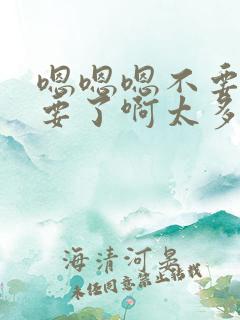 嗯嗯嗯不要
要了啊太多
海清河晏
未经同意禁止转载